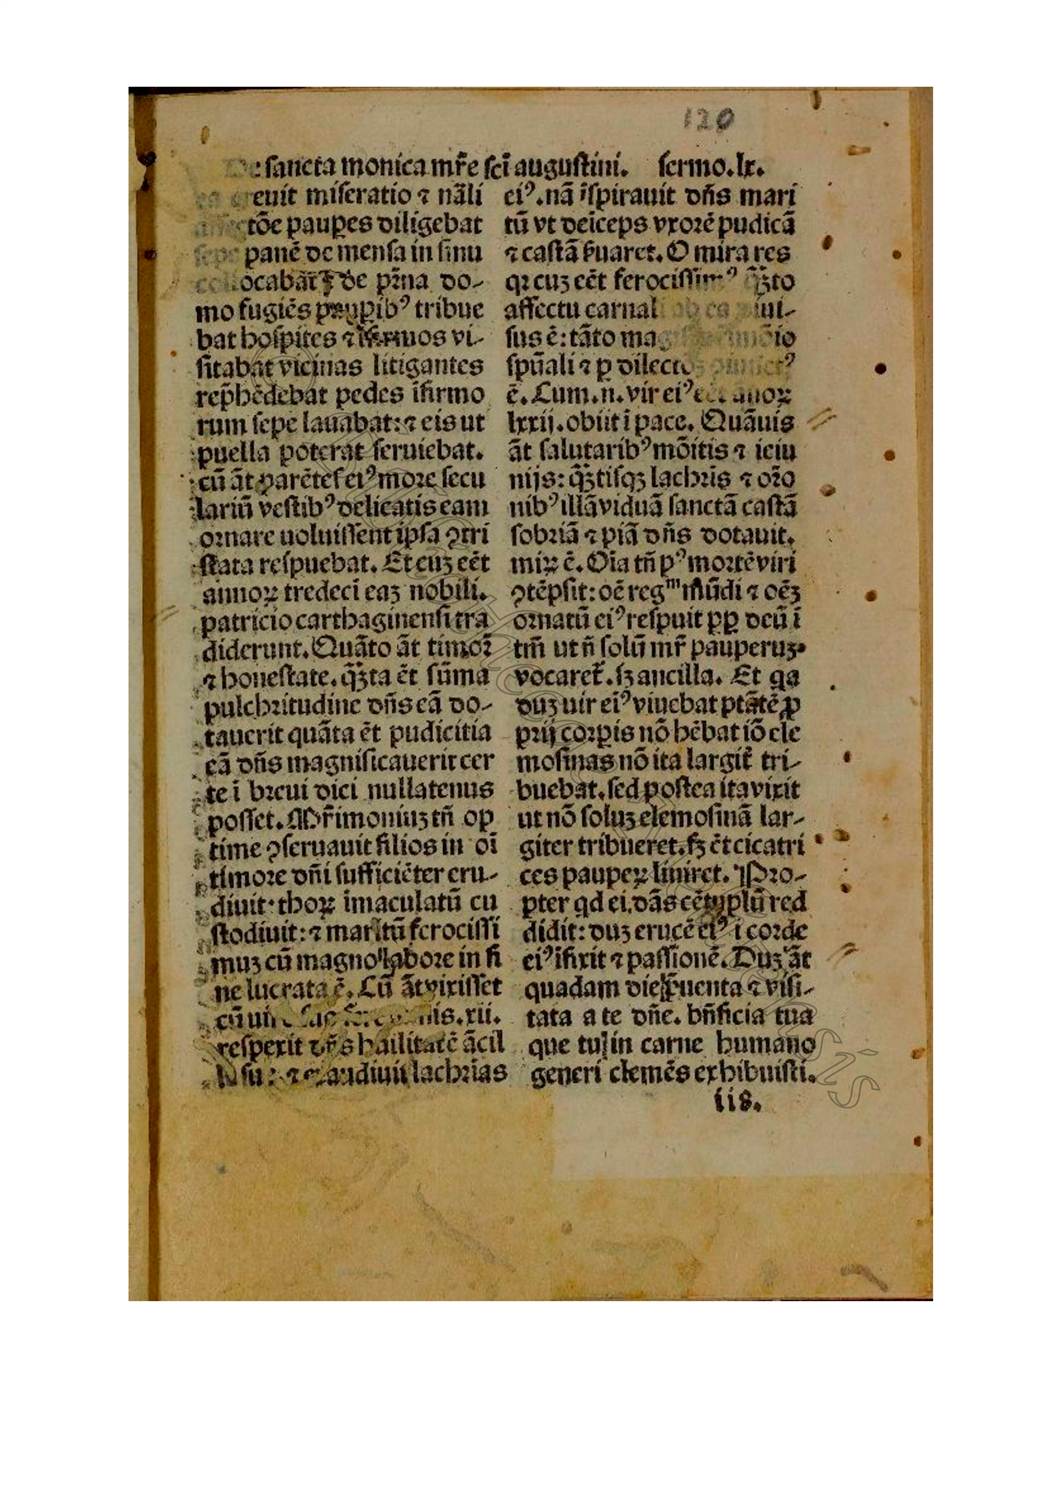 120
: sancta monica mr̄e sci augustini. sermo.lx.
euit miseratio ⁊ nāli
tōe pauꝑes diligebat
panē de mensa in sinu
ocabat de pr̄na do-
mo fugiēs ꝑibꝰ tribue
bat hospites ⁊ vi-
sitabat vicinas litigantes
rep̄hēdebat pedes īfirmo
rum sepe lauabat: ⁊ eis ut
puella poterat seruiebat.
cū āt parētes eiꝰ more secu
lariū vestibꝰ delicatis eam
ornare uoluissent ip̄a ꝯtri
stata respuebat. Et cuꝫ eēt
annoꝝ tredeci eaꝫ nobili.
patricio carthaginensi tra
diderunt. Quāto āt timoꝛ̄
⁊ honestate. q̄ꝫta ēt sūma
pulchꝛitudine dn̄s eā do-
tauerit quāta ēt pudicitia
eā dn̄s magnificauerit cer
te ī bꝛeui dici nullatenus
posset. Mr̄imoniuꝫ tn̄ op
time ꝯseruauit filios in oī
timore dn̄i sufficiēter eru-
diuit. thoꝝ īmaculatū cu
stodiuit: ⁊ maritū ferocissi
muꝫ cū magno labore in fi
ne lucrata ē. Cū āt vixisset
cū uir nis.xii.
respexit dn̄s hūilitatē ācil
⁊ audiuit lachrīas
eiꝰ. nā īspirauit dn̄s mari
tū vt deīceps vxorē pudicā
⁊ castā ẜuaret. O mira res
qꝛ cuꝫ eēt ferocissim q̄ꝫto
affectu carnal
sus ē: tāto mag
spūali ⁊ ꝑ dilectō
ē. Cum.n. vir eiꝰ annoꝝ
lxxij. obiit ī pace. Quāuis
āt salutaribꝰ mōitis ⁊ ieiu
nijs: q̄ꝫtisqꝫ lachrīs ⁊ oꝛ̄o
nibꝰ illā viduā sanctā castā
sobriā ⁊ piā dn̄s dotauit.
miꝝ ē. Oīa tn̄ pꝰ moꝛtē viri
ꝯtēpsit: oē regᵐ mūdi ⁊ oēꝫ
ornatū eiꝰ respuit ꝓꝑ deū ī
tm̄ ut n̄ solū mr̄ pauperuꝫ
vocaret̄. sꝫ ancilla. Et qa
duꝫ uir eiꝰ viuebat ptātē ꝓ
prij coꝛꝑis nō hēbat iō ele
mosinas nō ita largit̄ tri-
buebat. sed postea ita vixit
ut nō soluꝫ elemosinā lar-
giter tribueret. sꝫ ēt cicatri
ces paupeꝝ liniret. Pro-
pter qd ei. dās cētuplū red
didit: duꝫ crucē eiꝰ ī corde
eiꝰ ifixit ⁊ passionē. Duꝫ āt
quadam die ꝑuenta ⁊ visi-
tata a te dn̄e. bn̄ficia tua
que tu in carne humano
generi clemēs exhibuisti.
ii8.